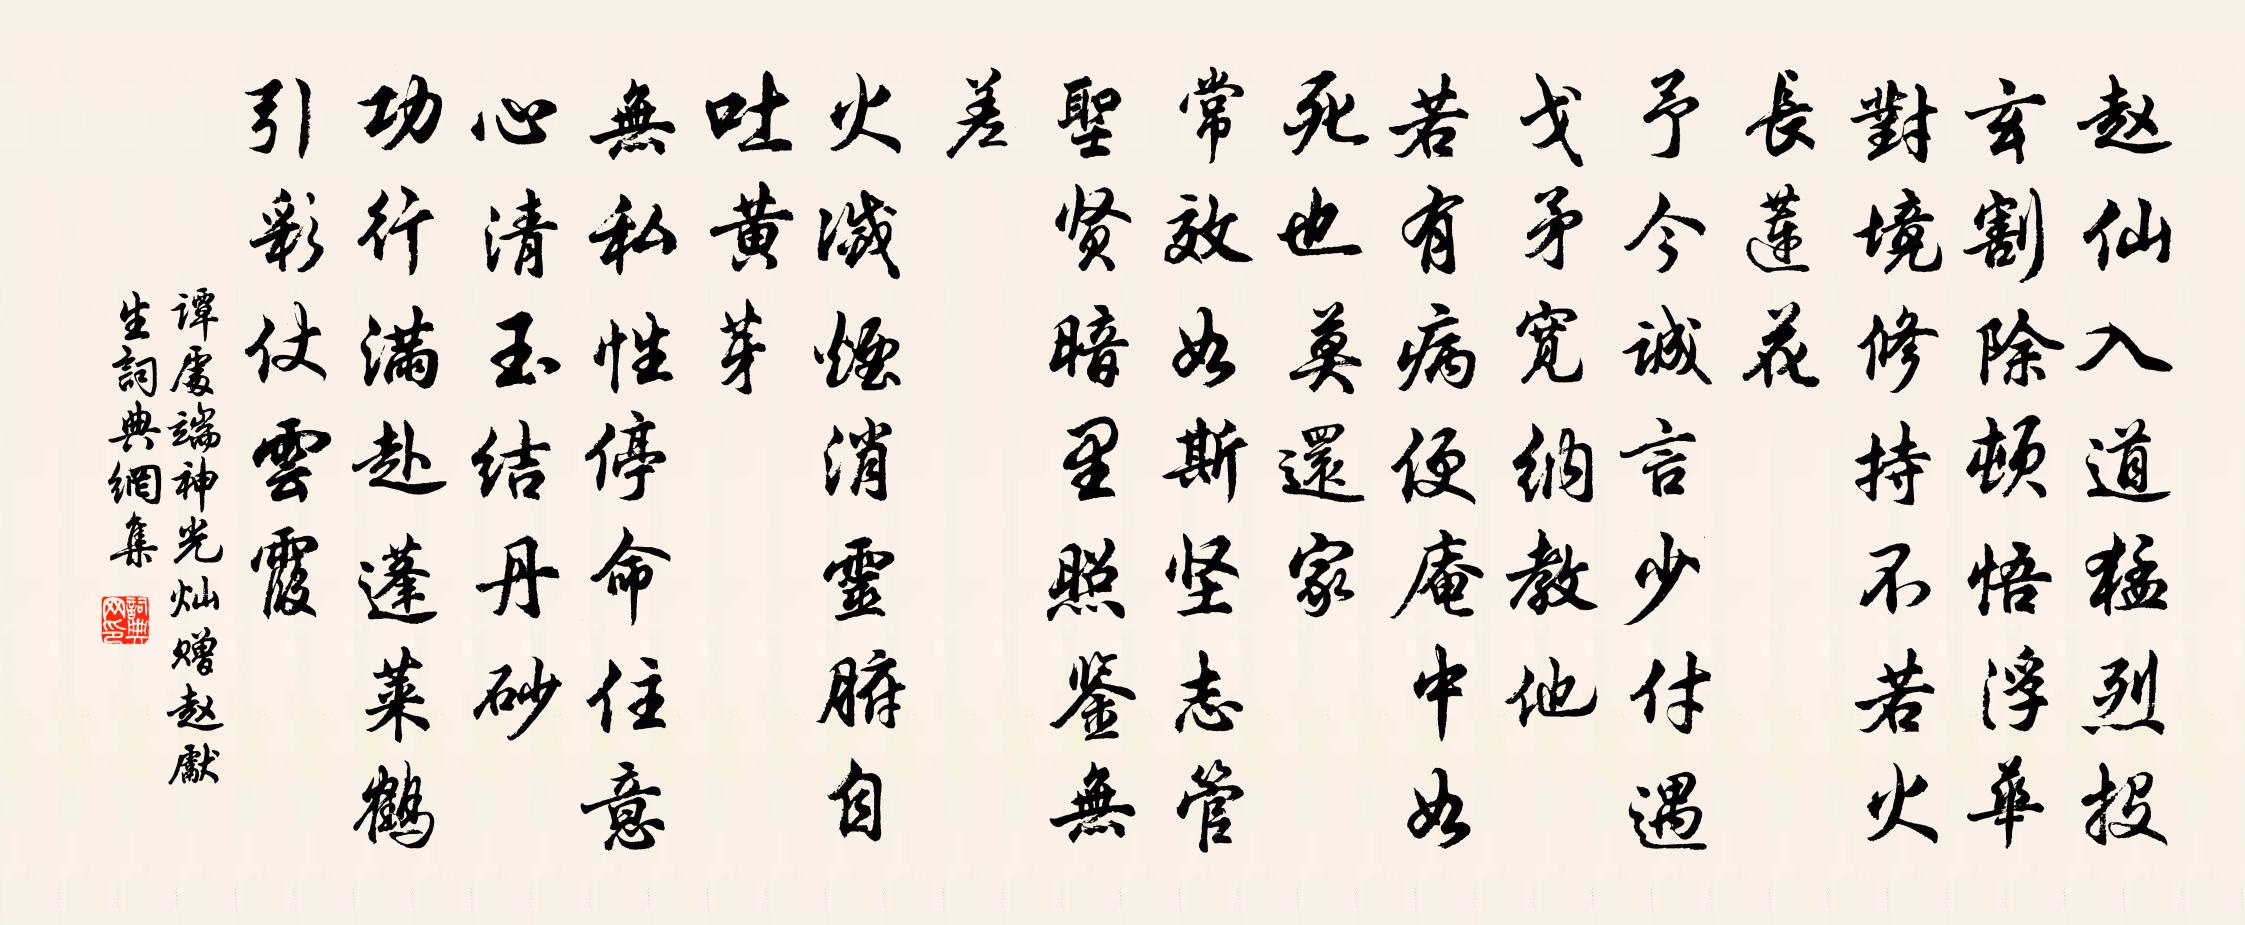 赵仙入道猛烈投
玄割除顿悟浮華
對境修持不若火
長蓮花
予今誠言少付遇
戈矛寬納教他
若有病便庵中如
死也莫還家
常效如斯坚志管
聖贤暗里照鉴無
差
火滅煙消靈腑自
吐黄芽
無私性停命住意
心清玉结丹砂
功行满赴蓬莱鶴
引彩仗雲霞
谭處端神光灿赠赵獻
生詞典網集
詞典网印